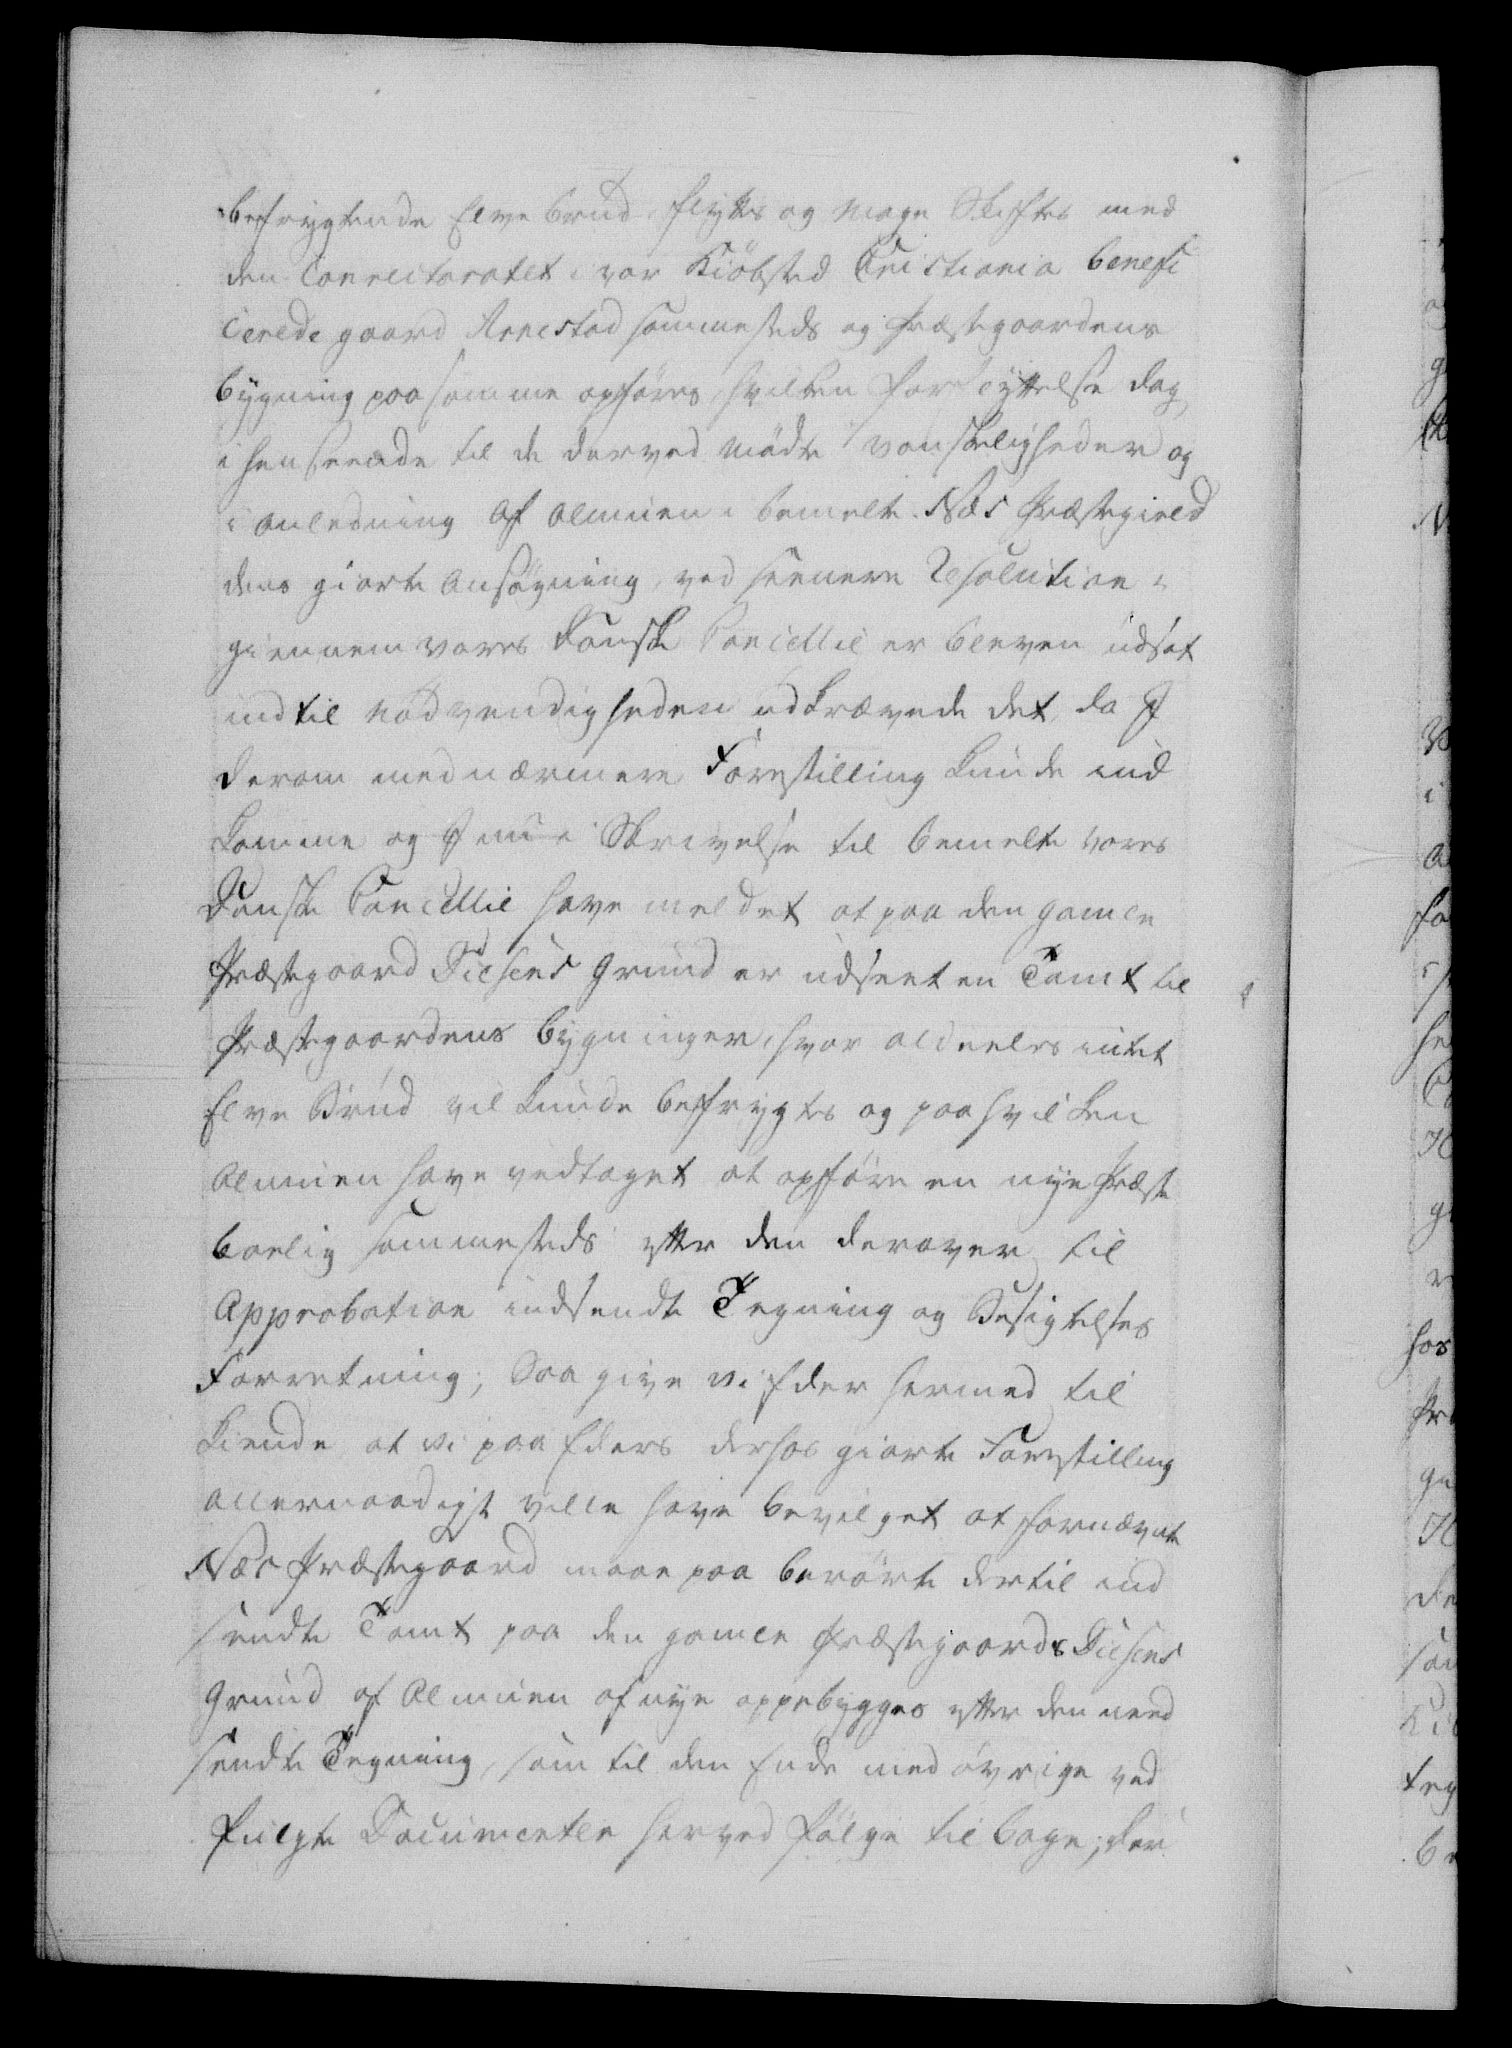 befrygtende Elve brud flyttes og Mage Skiftes med
den Conrectoratet i vor Kiöbsted Christiania benefi
cerede gaard Arnestad sammesteds og Præstegaardens
bygning paa samme opføres, hvilken forflyttelse dog,
i henseende til de derved mødte vanskeligheder og
i anledning af Almuen i bemelte Næs Præstegield
dens giorte Ansøgning, ved seenere Resolution i-
giennem vores Danske Cancellie er bleven udsat
indtil Nødvendigheden udkrævede det, da I
derom med nærmere Forestilling kunde ind
komme og I nu i Skrivelse til bemelte vores
Danske Cancellie have meldet at paa den gamle
Præstegaard Disens Grund er udseet en Tomt til
Præstegaardens bygninger, hvor aldeeles intet
Elve Brud vil kunde befrygtes og paa hvilken
Almuen have vedtaget at opføre en nye Præste
boelig sammesteds efter den derover til
Approbation indsendte Tegning og Besigtelses
Forretning; Saa give vi Eder hermed til
kiende at vi paa Eders derhos giorte Forestilling
allernaadigst ville have bevilget at fornævnte
Næs Præstegaard maae paa berørte dertil ud
seedte Tomt paa den gamle Præstegaards Disens
Grund af Almuen af nye oppebygges efter den ind
sendte Tegning, som til den Ende med øvrige ved
fulgte Documenter herved følge tilbage; der